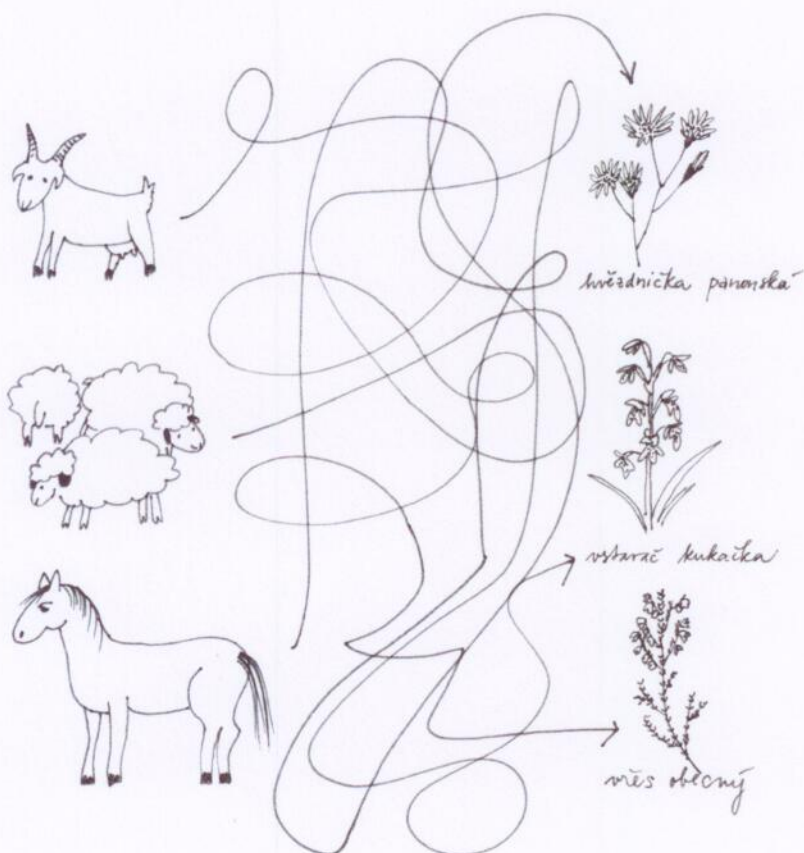 hvězdnička panonská
vstavač kukačka
vřes obecný